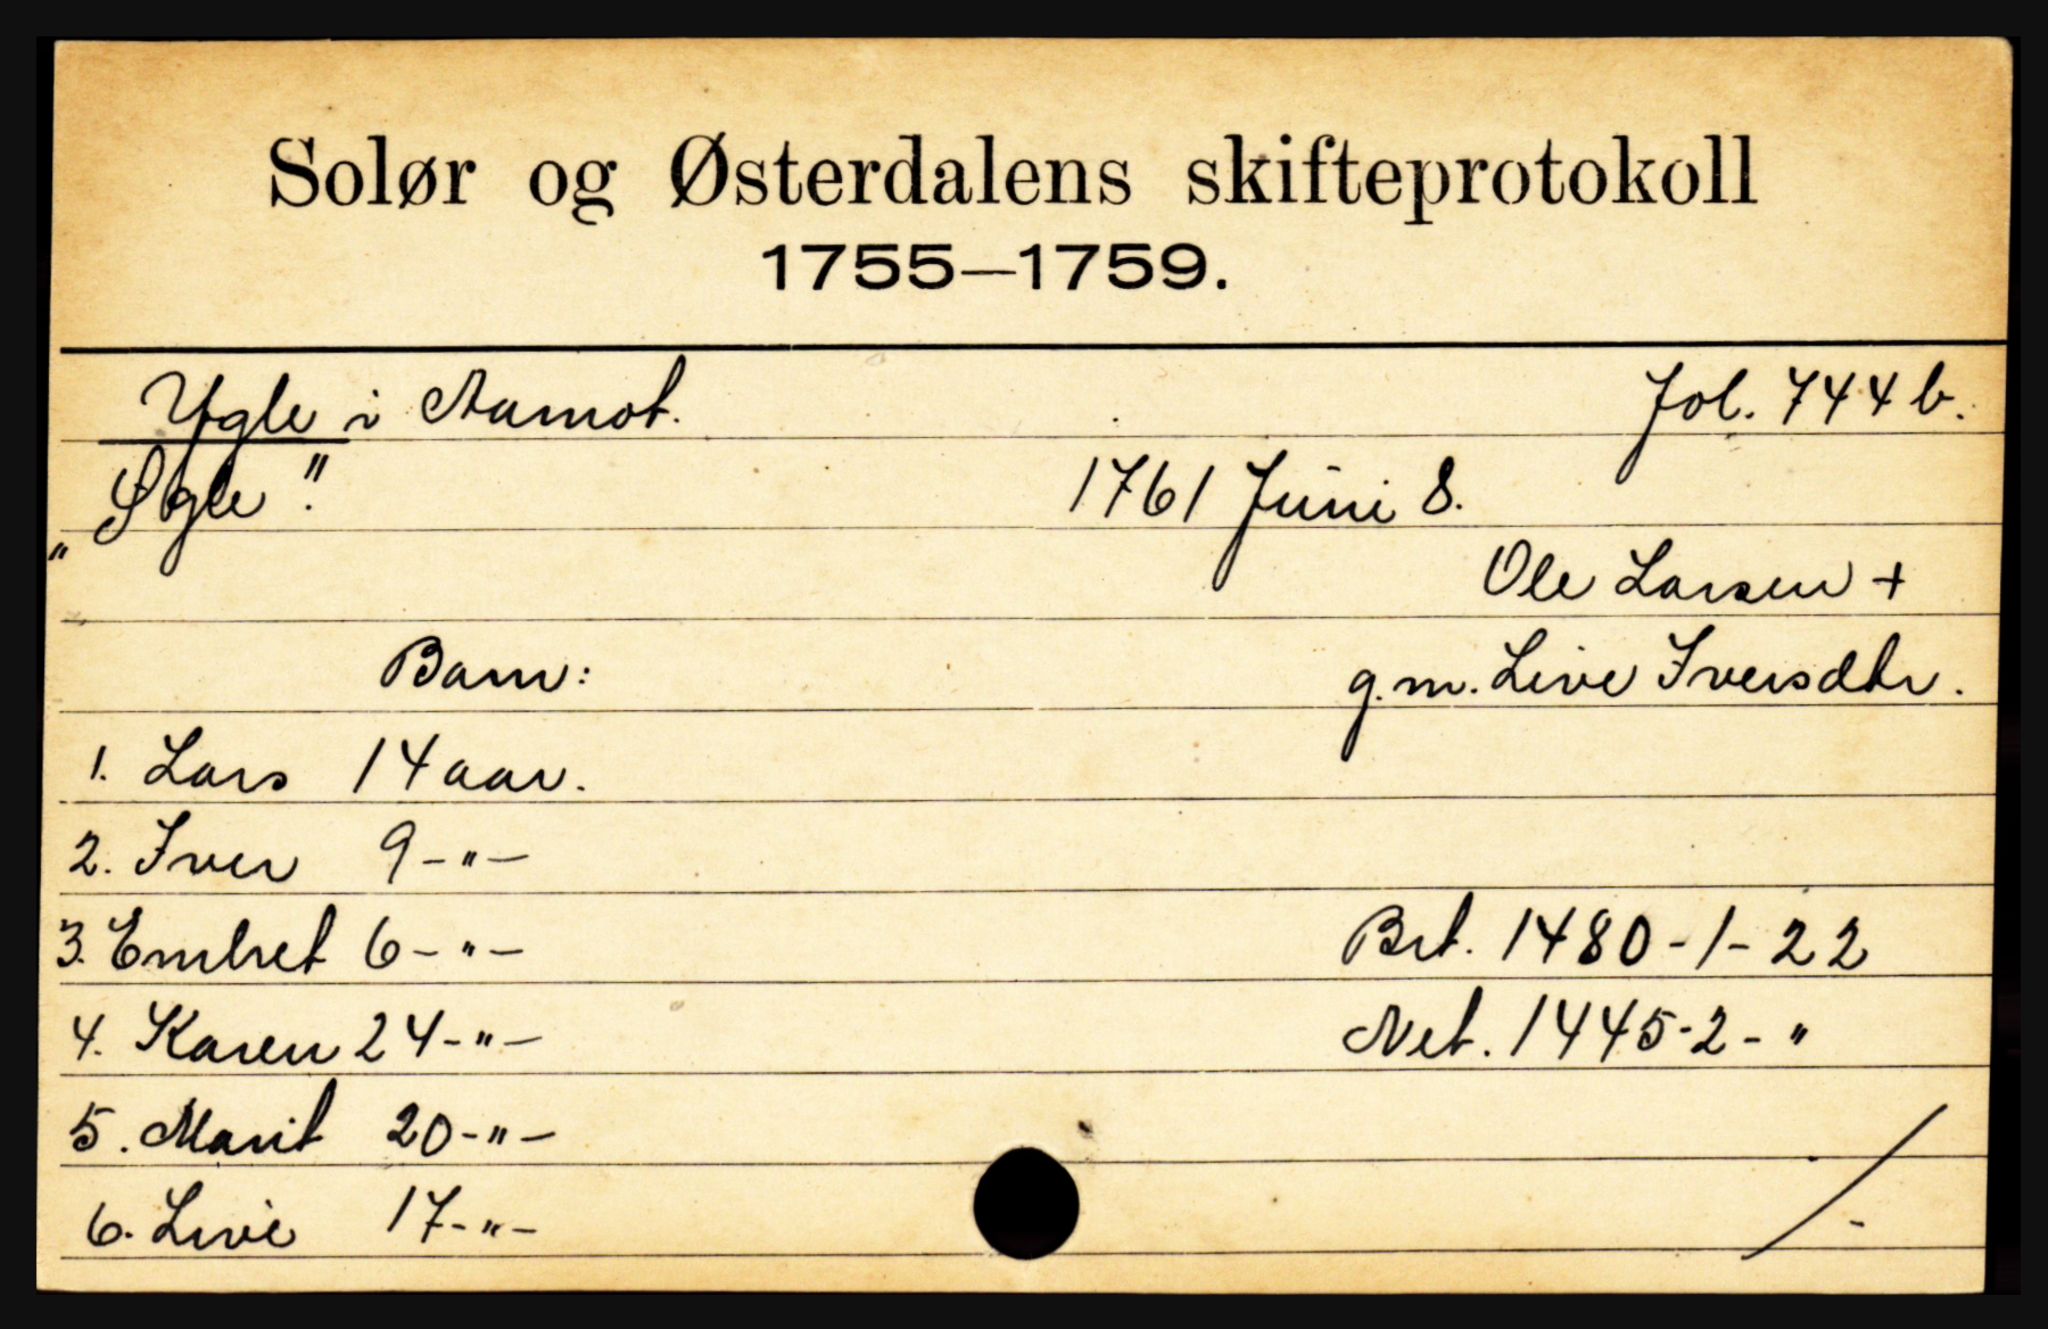 Solør og Østerdalens skifteprotokoll
1755—1759.
Ygle i Aamot. Fol. 744 b.
„Øgle". 1761 Juni 8.
Ole Larsen +
Barn: g.m. Live Iversdtr.
1. Lars 14 aar.
2. Iver 9 -"-
3. Embret 6 -"- Brt. 1480-1-22
4. Karen 24 -"- Net. 1445-2-"
5. Marit 20 -"-
6. Live 17 -"-